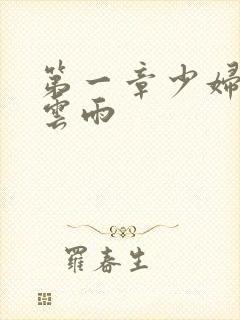 第一章少婦
雲雨
羅春生